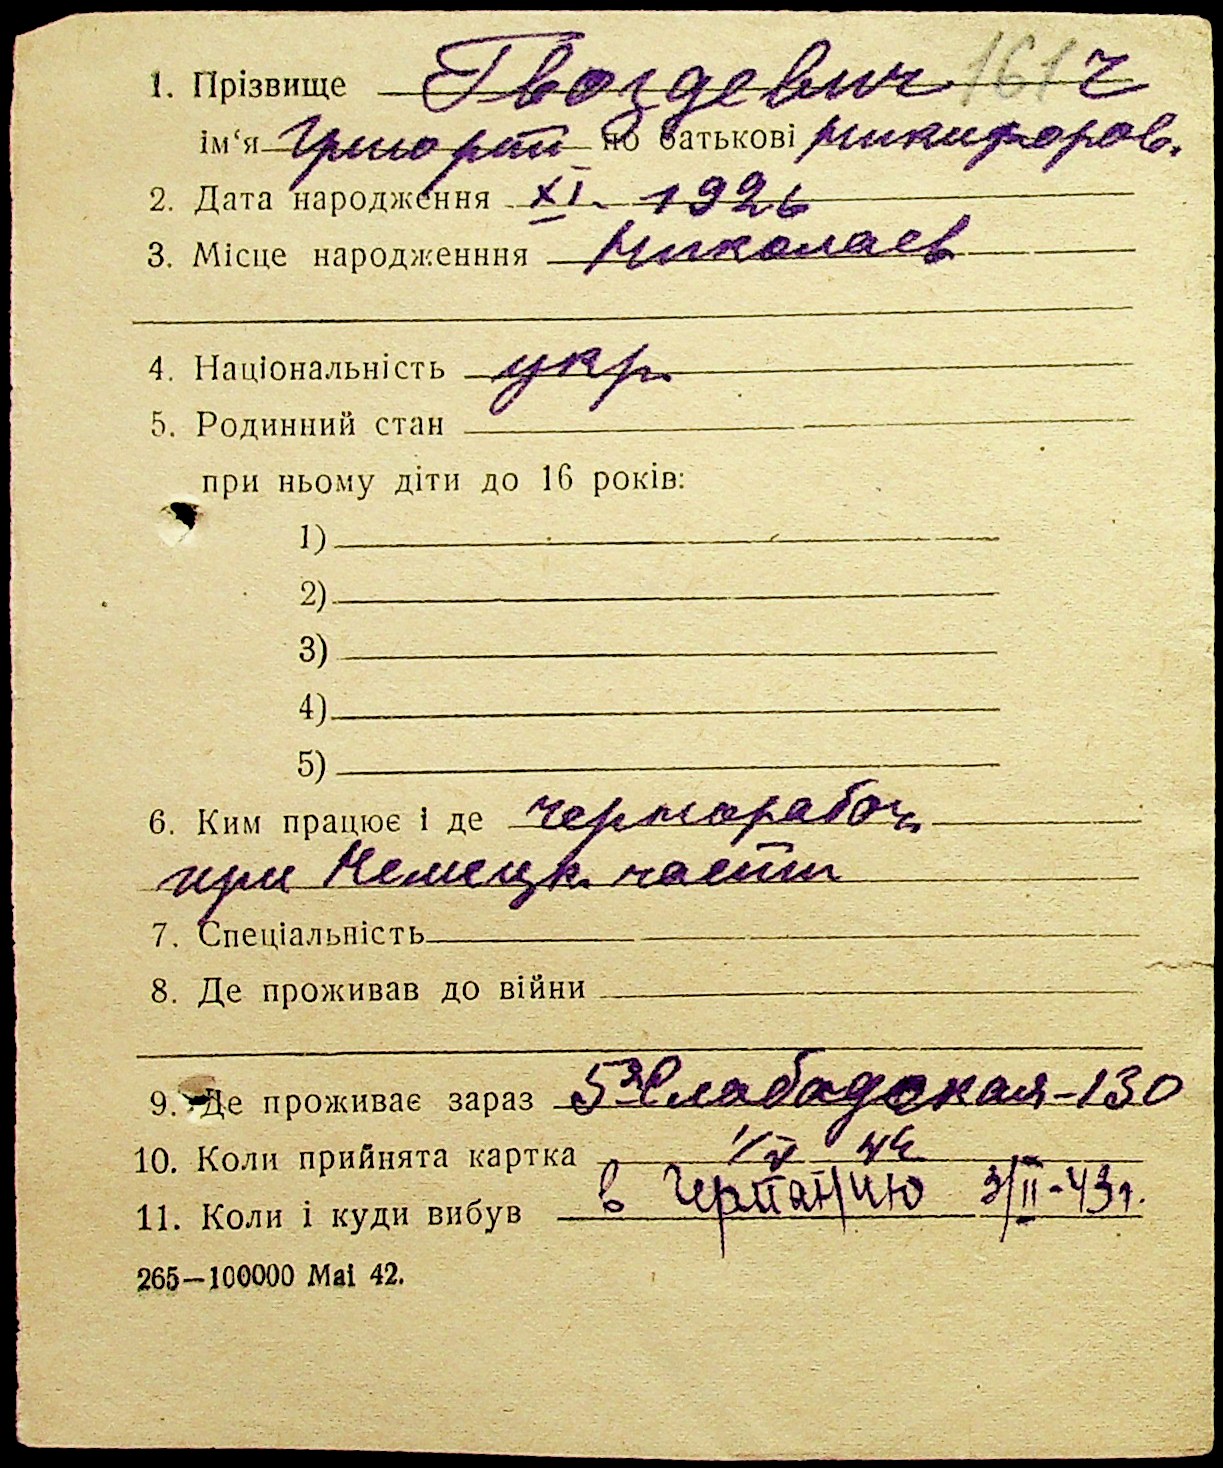 1. Прізвище Гвоздевич 161 ч
ім‘я Григорий по батькові Никифоров.
2. Дата народження XI. 1926
3. Місце народженння Николаев
4. Національність укр.
5. Родинний стан
при ньому діти до 16 років:
1)
2)
3)
4)
5)
6. Ким працює і де чернорабоч.
при Немецк. части
7. Спеціальність
8. Де проживав до війни
9. Де проживає зараз 5я Слабодская-130
10. Коли прийнята картка
11. Коли і куди вибув в Германию 3/II-43г.
265—100000 Mai 42.